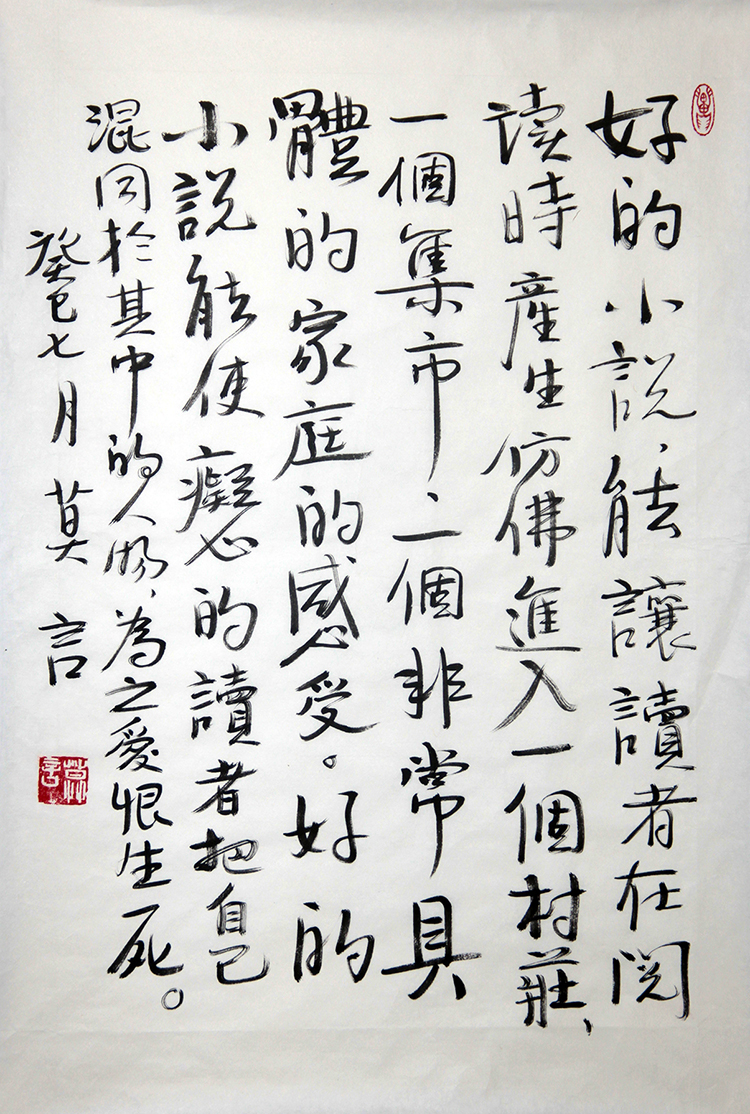 好的小説，能讓讀者在閱
读時産生仿佛進入一個村莊、
一個集市、一個非常具
體的家庭的感受。好的
小説能使癡心的讀者把自己
混同於其中的人物，為之愛恨生死。
癸巳七月 莫言
莫言